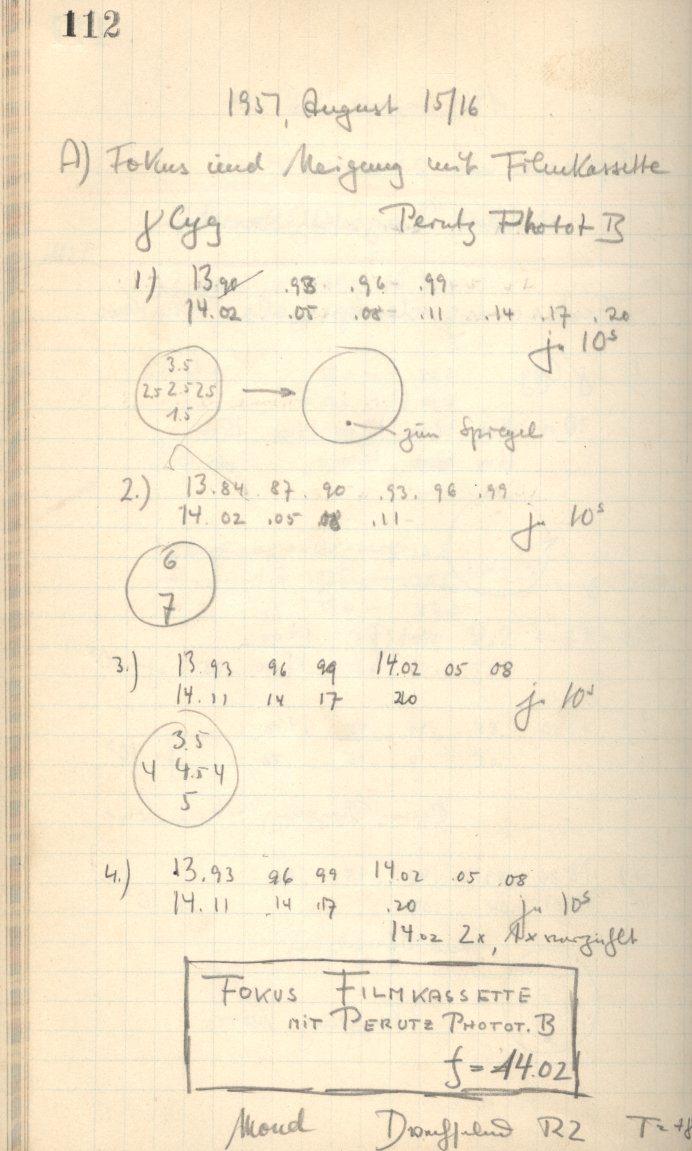 112
1957, August 15/16
A) Fokus und Neigung mit Filmkassette
γ Cyg Perutz Photot B
1.) 13.90 .93 .96 .99
14.02 .05 .08 .11 .14 .17 .20
je 10s
3.5
2.5 2.5 2.5
1.5
zum Spiegel
2.) 13.84 87 90 .93 .96 .99
14.02 .05 .08 .11 je 10s
6
7
3.) 13.93 96 99 14.02 05 08
14.11 14 17 20 je 10s
3.5
4 4.5 4
5
4.) 13.93 96 99 14.02 .05 .08
14.11 .14 .17 .20 je 10s
14.02 2x,
FOKUS FILMKASSETTE
MIT PERUTZ PHOTOT. B
f = 14.02
Mond RZ T = +8